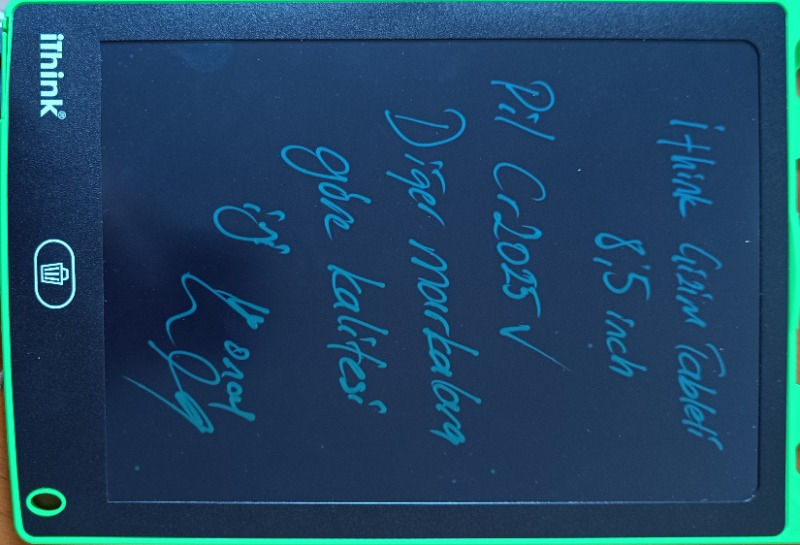 ithink Çizim Tableti
8,5 inch
Pil Cr2025 ✓
Diğer markalara
göre kalitesi
iyi
Koray
iThink®